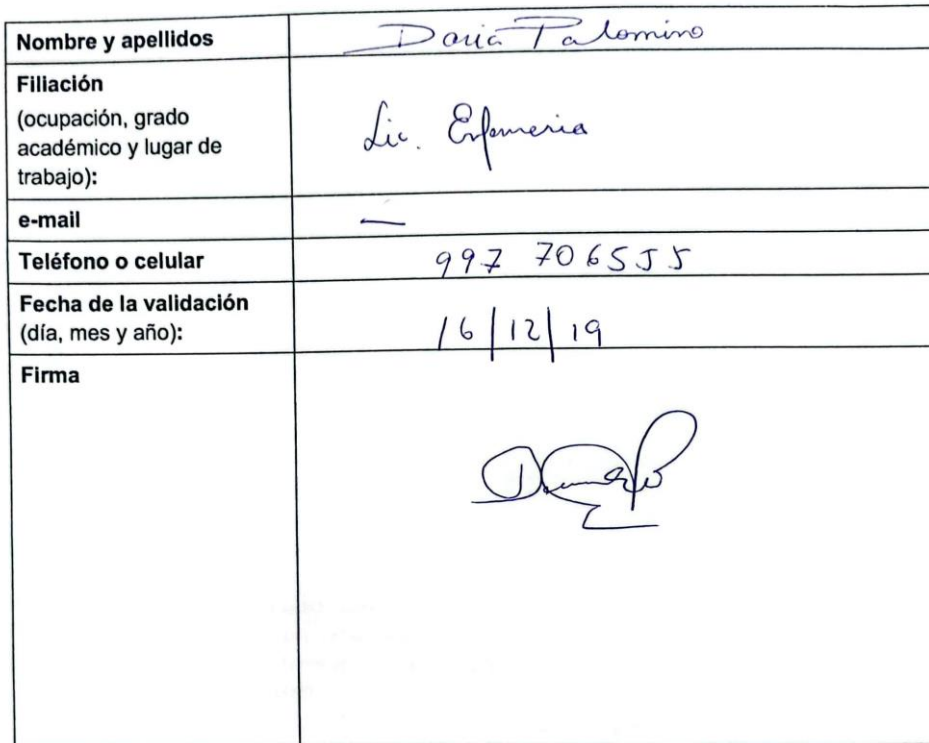 Nombre y apellidos
Daria Palomino
Filiación
(ocupación, grado
académico y lugar de
trabajo):
Lic. Enfermeria
e-mail
—
Teléfono o celular
997 706555
Fecha de la validación
(día, mes y año):
16/12/19
Firma